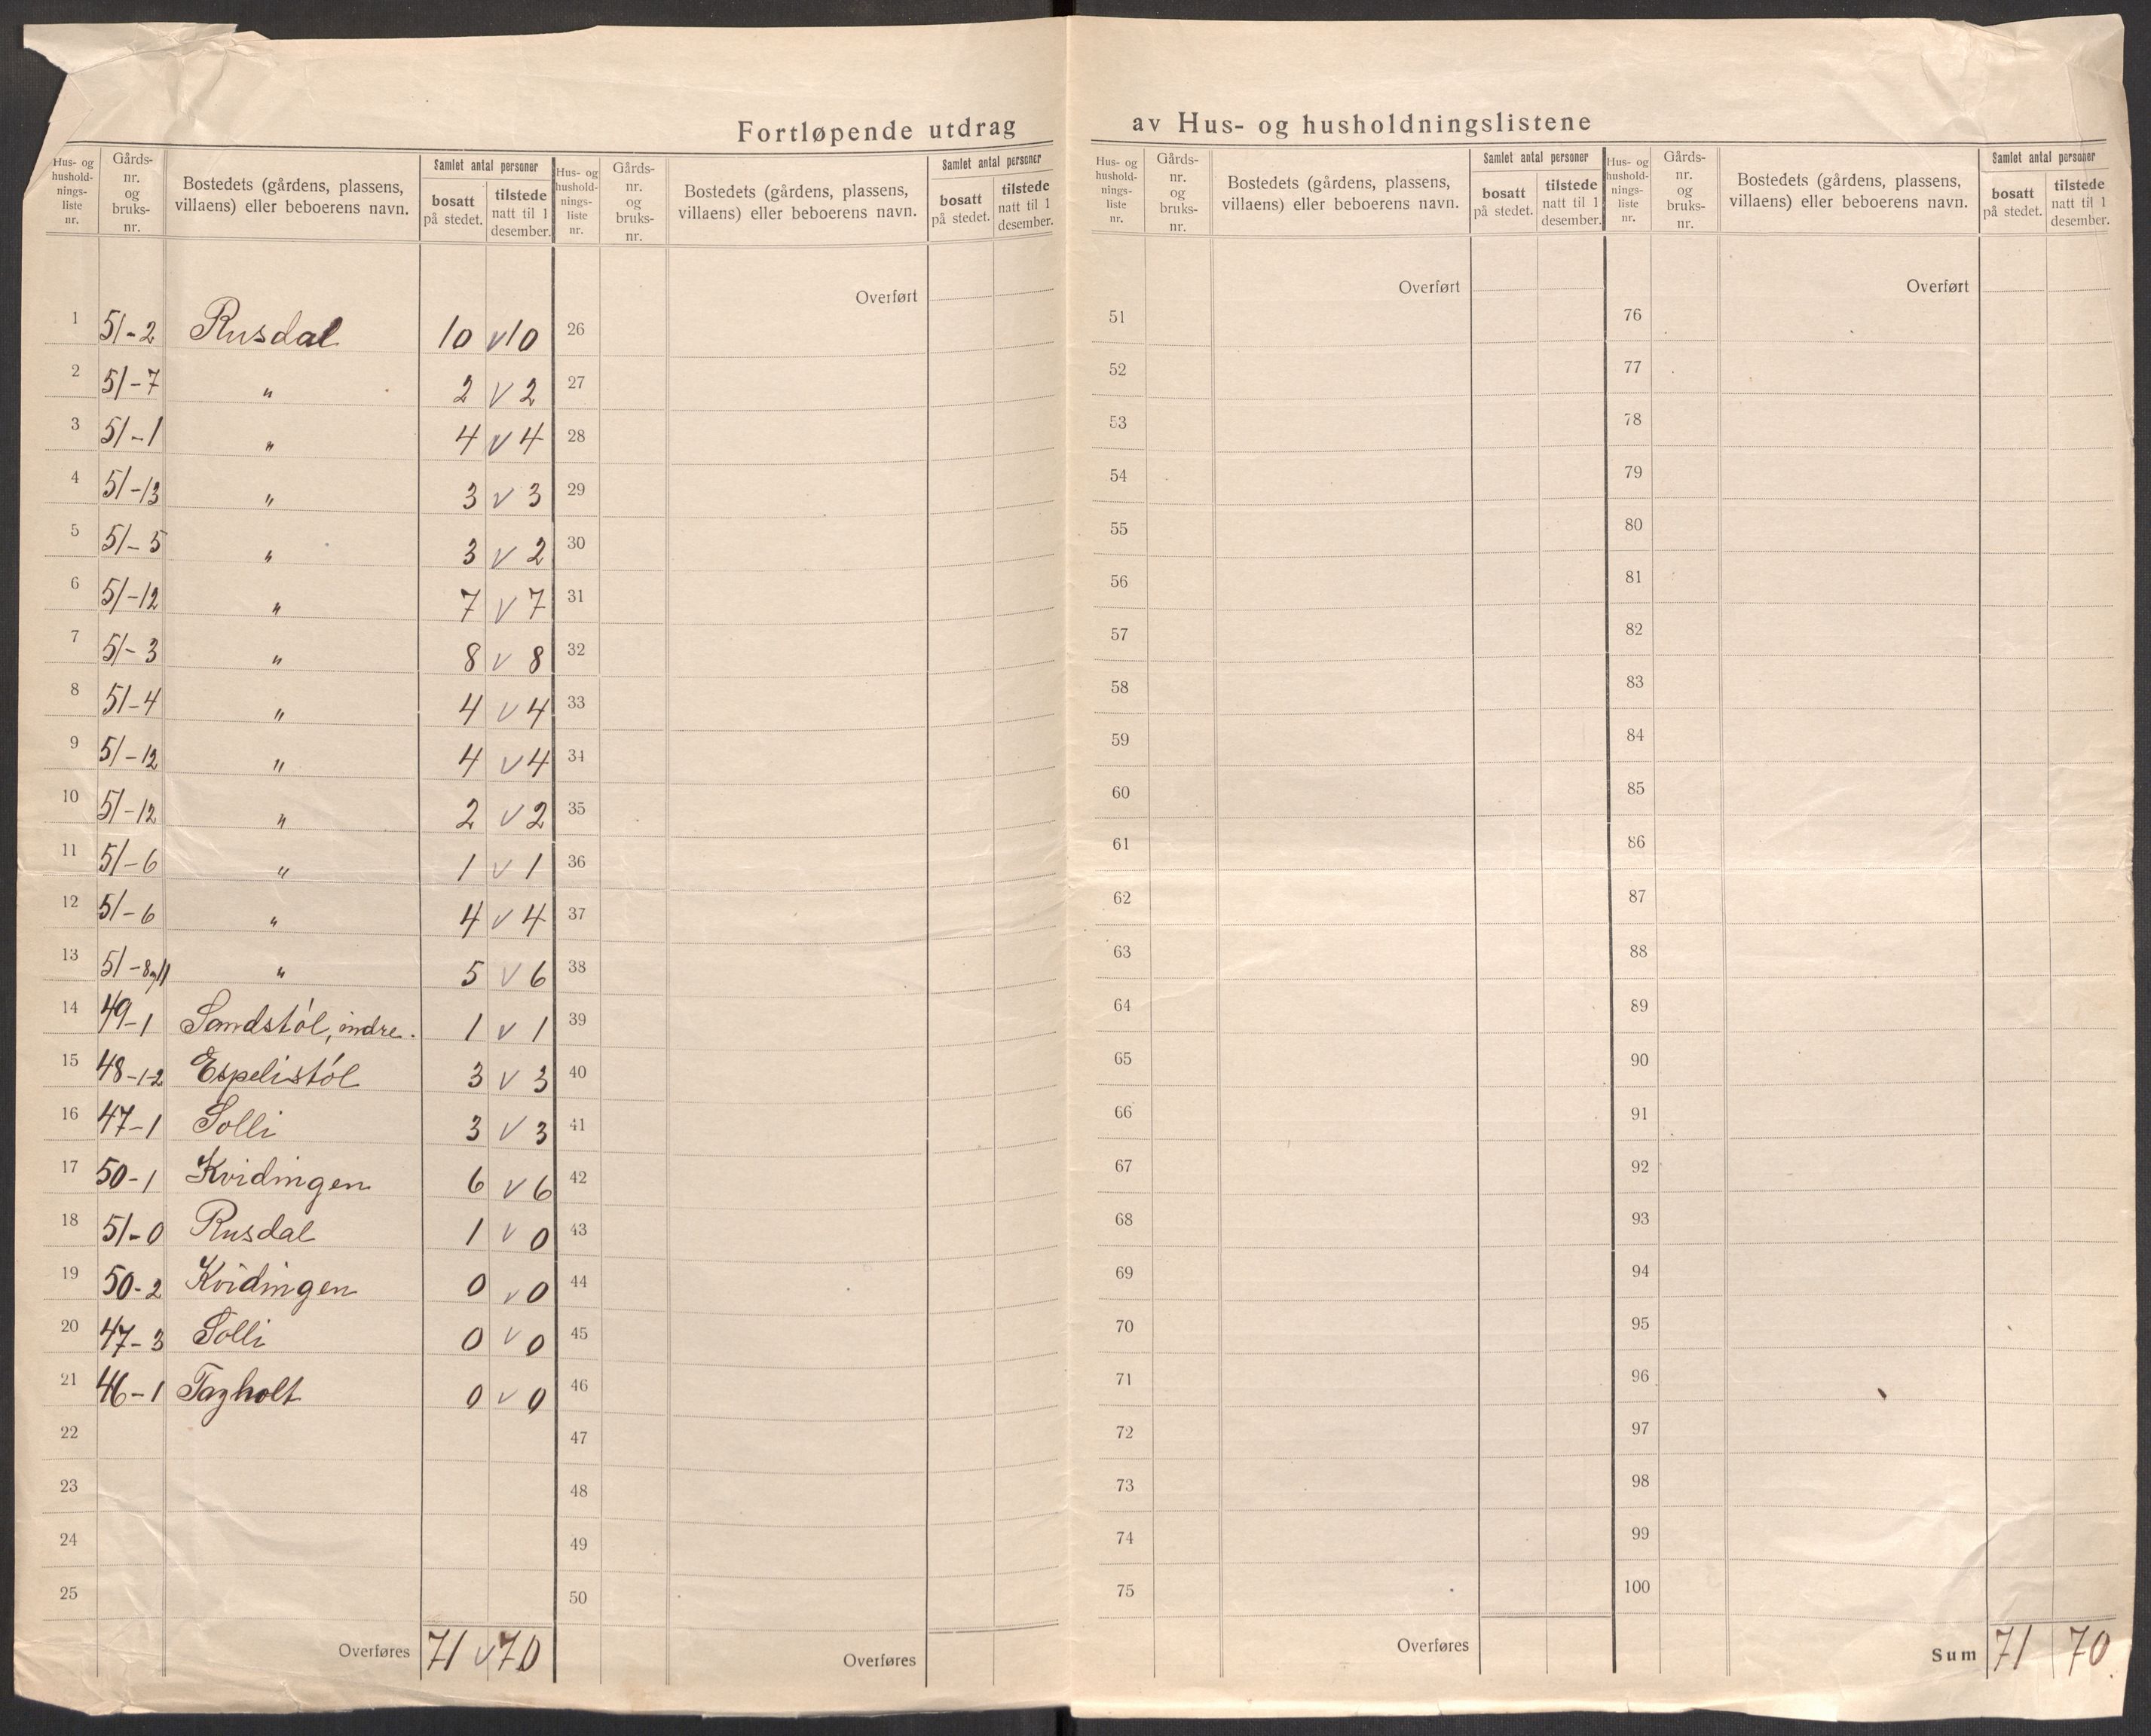 Fortløpende utdrag av Hus- og husholdningslistene
Hus- og husholdnings- liste nr. | Gårds- nr. og bruks- nr. | Bostedets (gårdens, plassens, villaens) eller beboerens navn. | Samlet antal personer | bosatt på stedet. | tilstede natt til 1 desember.
Hus- og husholdnings- liste nr. | Gårds- nr. og bruks- nr. | Bostedets (gårdens, plassens, villaens) eller beboerens navn. | Samlet antal personer | bosatt på stedet. | tilstede natt til 1 desember.
Hus- og husholdnings- liste nr. | Gårds- nr. og bruks- nr. | Bostedets (gårdens, plassens, villaens) eller beboerens navn. | Samlet antal personer | bosatt på stedet. | tilstede natt til 1 desember.
Hus- og husholdnings- liste nr. | Gårds- nr. og bruks- nr. | Bostedets (gårdens, plassens, villaens) eller beboerens navn. | Samlet antal personer | bosatt på stedet. | tilstede natt til 1 desember.
Overført Overført Overført
1 51-2 Rusdal 10 v 10 26 51 76
2 51-7 " 2 v 2 27 52 77
3 51-1 " 4 v 4 28 53 78
4 51-13 " 3 v 3 29 54 79
5 51-5 " 3 v 2 30 55 80
6 51-12 " 7 v 7 31 56 81
7 51-3 " 8 v 8 32 57 82
8 51-4 " 4 v 4 33 58 83
9 51-12 " 4 v 4 34 59 84
10 51-12 " 2 v 2 35 60 85
11 51-6 " 1 v 1 36 61 86
12 51-6 " 4 v 4 37 62 87
13 51-8,11 " 5 v 6 38 63 88
14 49-1 Sandstøl, indre. 1 v 1 39 64 89
15 48-1-2 Espelistøl 3 v 3 40 65 90
16 47-1 Solli 3 v 3 41 66 91
17 50-1 Kvidingen 6 v 6 42 67 92
18 51-0 Rusdal 1 v 0 43 68 93
19 50-2 Kvidingen 0 v 0 44 69 94
20 47-3 Solli 0 v 0 45 70 95
21 46-1 Tagholt 0 v 0 46 71 96
22 47 72 97
23 48 73 98
24 49 74 99
25 50 75 100
Overføres 71 v 70 Overføres Overføres Sum 71 70